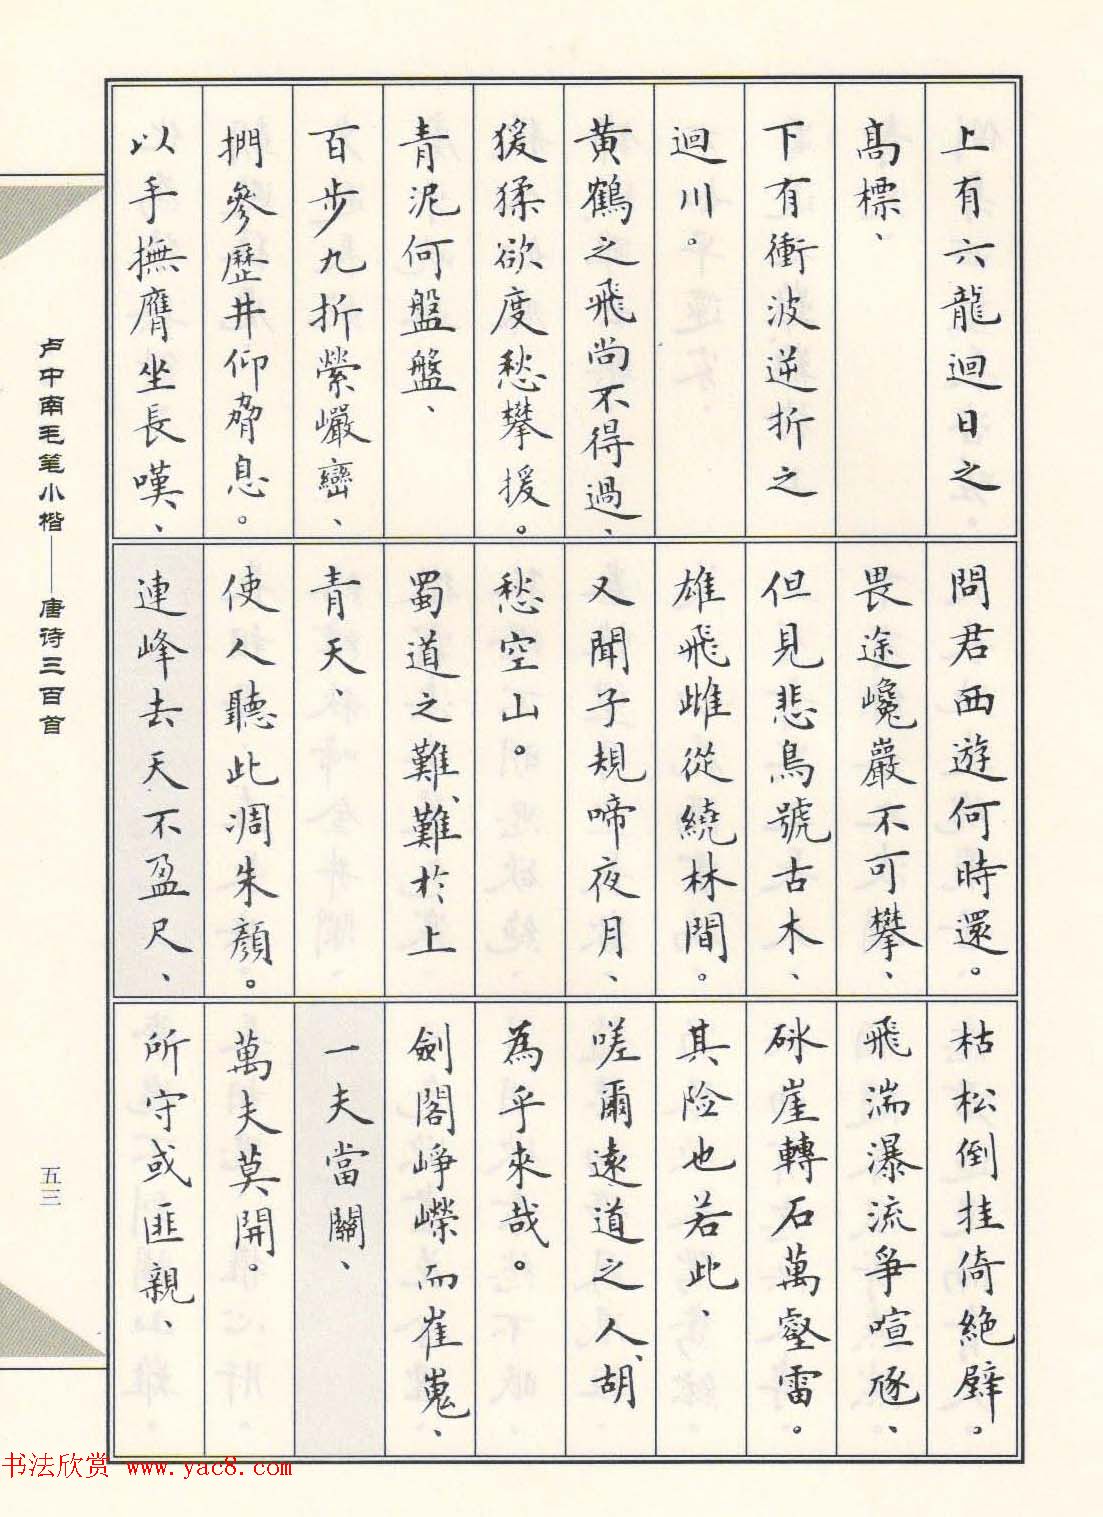 上有六龍迴日之
高標、
下有衝波逆折之
迴川。
黃鶴之飛尚不得過、
猨猱欲度愁攀援。
青泥何盤盤、
百步九折縈巖巒、
捫參歷井仰脅息。
以手撫膺坐長嘆、
問君西遊何時還。
畏途巉巖不可攀、
但見悲鳥號古木、
雄飛雌從繞林間。
又聞子規啼夜月、
愁空山。
蜀道之難、難於上
青天、
使人聽此凋朱顏。
連峰去天不盈尺、
枯松倒挂倚絶壁。
飛湍瀑流爭喧豗、
砯崖轉石萬壑雷。
其险也若此、
嗟爾遠道之人、胡
為乎來哉。
劍閣崢嶸而崔嵬、
一夫當關、
萬夫莫開。
所守或匪親、
卢中南毛笔小楷——唐诗三百首
五三
书法欣赏 www.yac8.com